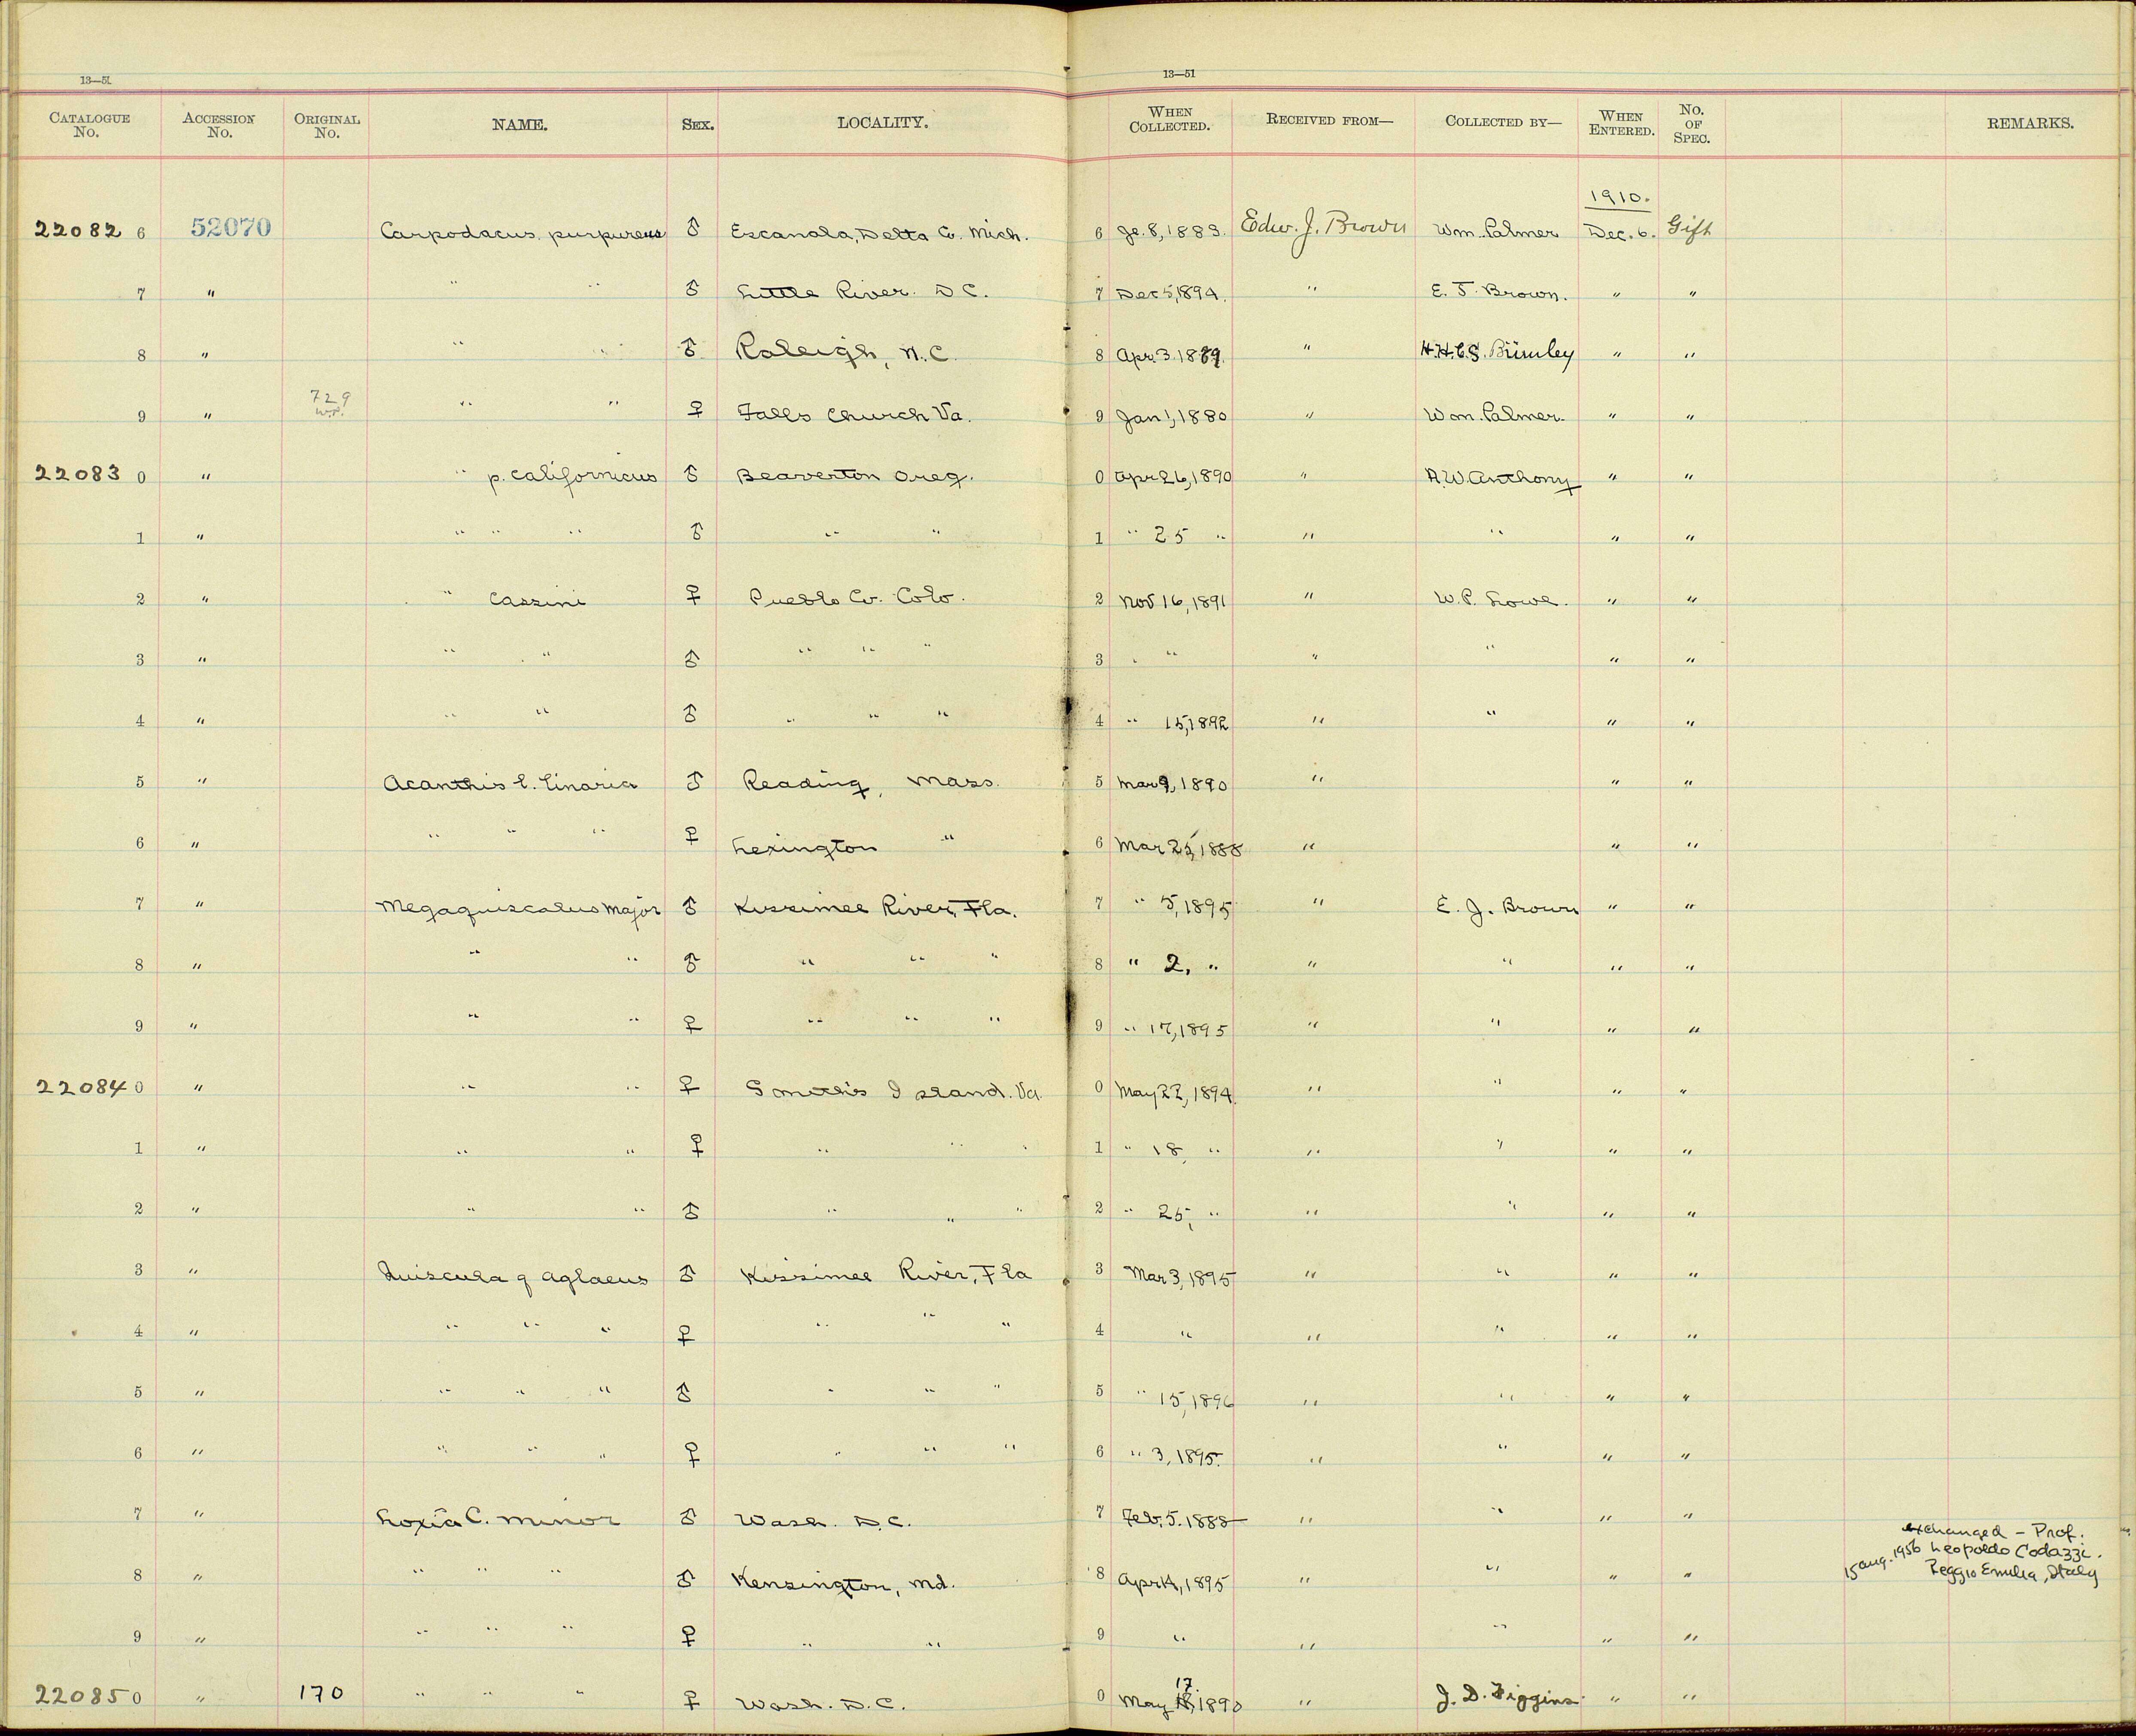 13—51
13—51
CATALOGUE No. ACCESSION No. ORIGINAL No. NAME. SEX. LOCALITY. WHEN COLLECTED. RECEIVED FROM— COLLECTED BY— WHEN ENTERED. No. OF SPEC. REMARKS.
1910.
22082 6 52070 Carpodacus purpureus ♂ Escanala, Delta Co. Mich. 6 Je. 8, 1883. Edw. J. Brown Wm. Palmer Dec. 6. Gift
7 " " " ♂ Little River. D C. 7 Dec 5, 1894. " E. J. Brown. " "
8 " " " ♂ Raleigh, N. C. 8 Apr. 3. 1889. " H.H. & C.S. Brimley " "
9 " 729 W.P. " " ♀ Falls Church Va. 9 Jan 1, 1880 " Wm. Palmer. " "
22083 0 " " p. californicus ♂ Beaverton Oreg. 0 Apr 26, 1890 " A.W. Anthony " "
1 " " " " ♂ " " 1 " 25 " " " " "
2 " " Cassini ♀ Pueblo Co. Colo. 2 Nov 16, 1891 " W. P. Lowe. " "
3 " " " ♂ " " " 3 " " " " " "
4 " " " ♂ " " " 4 " 15, 1892 " " " "
5 " Acanthis l. linaria ♂ Reading, Mass. 5 Mar 9, 1890 " " "
6 " " " " ♀ Lexington " 6 Mar 25, 1888 " " "
7 " Megaquiscalus Major ♂ Kissimee River, Fla. 7 " 5, 1895 " E. J. Brown " "
8 " " " ♂ " " " 8 " 2, " " " " "
9 " " " ♀ " " " 9 " 17, 1895 " " " "
22084 0 " " " ♀ Smiths Island. Va. 0 May 22, 1894. " " " "
1 " " " ♀ " " " 1 " 18, " " " " "
2 " " " ♂ " " " 2 " 25, " " " " "
3 " Quiscula q aglaeus ♂ Kissimee River, Fla 3 Mar 3, 1895 " " " "
4 " " " " ♀ " " " 4 " " " " "
5 " " " " ♂ " " " 5 " 15, 1896 " " " "
6 " " " " ♀ " " " 6 " 3, 1895. " " " "
7 " Loxia C. minor ♂ Wash. D.C. 7 Feb. 5. 1888 " " " "
exchanged – Prof.
15 Aug. 1956 Leopoldo Codazzi.
8 " " " " ♂ Kensington, Md. 8 Apr 14, 1895 " " " " Reggio Emilia, Italy
9 " " " " ♀ " " 9 " " " " "
17
22085 0 " 170 " " " ♀ Wash. D. C. 0 May 18, 1890 " J. D. Figgins. " "